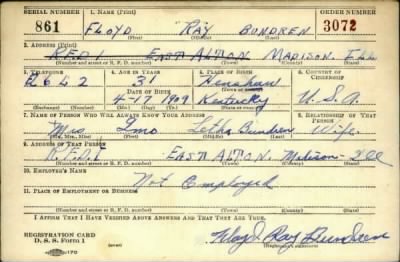 SERIAL NUMBER 1. NAME (Print) ORDER NUMBER
861 FLOYD RAY BUNDREN 3072
(First) (Middle) (Last)
2. ADDRESS (Print)
R.F.D. 1 EAST ALTON MADISON. ILL
(Number and street or R. F. D. number) (Town) (County) (State)
3. TELEPHONE 4. AGE IN YEARS 5. PLACE OF BIRTH 6. COUNTRY OF CITIZENSHIP
2642 31 Henshaw
DATE OF BIRTH (Town or county)
4-17-1909 Kentucky U.S.A.
(Exchange) (Number) (Mo.) (Day) (Yr.) (State or country)
7. NAME OF PERSON WHO WILL ALWAYS KNOW YOUR ADDRESS 8. RELATIONSHIP OF THAT PERSON
Mrs Letha Bundren Wife
(Mr., Mrs., Miss) (First) (Middle) (Last)
9. ADDRESS OF THAT PERSON
R.F.D. 1 EAST ALTON. Madison Ill
(Number and street or R. F. D. number) (Town) (County) (State)
10. EMPLOYER'S NAME
Not Employed
11. PLACE OF EMPLOYMENT OR BUSINESS
(Number and street or R. F. D. number) (Town) (County) (State)
I AFFIRM THAT I HAVE VERIFIED ABOVE ANSWERS AND THAT THEY ARE TRUE.
REGISTRATION CARD
D. S. S. Form 1 (over) Floyd Ray Bundren
(Registrant's signature)